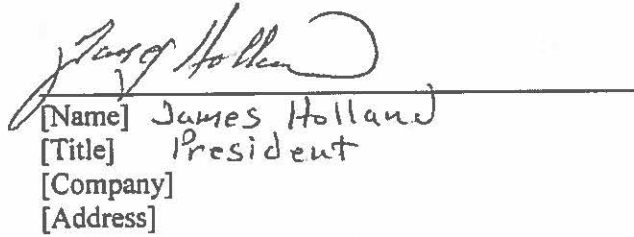 James Holland
[Name] James Holland
[Title] President
[Company]
[Address]